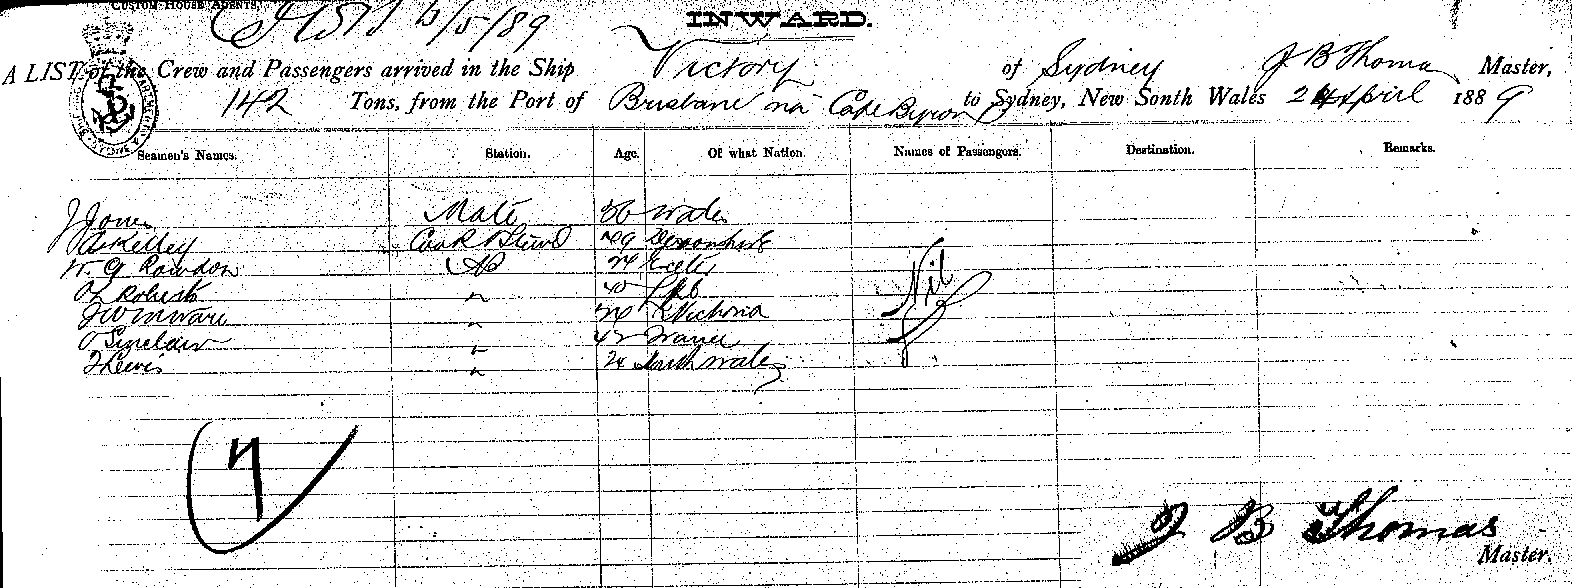 CUSTOM HOUSE AGENTS,
6/5/89
INWARD.
A LIST of the Crew and Passengers arrived in the Ship Victory of Sydney J B Thomas Master,
142 Tons, from the Port of Brisbane via Cape Byron to Sydney, New South Wales 24 April 1889
Seamen's Names. Station. Age. Of what Nation. Names of Passengers. Destination. Remarks.
J Jones Mate 36 Wales
Kelley Cook & Stewd 29 Devonshire
W. G Rowdon AB 24 Exeter
Roberts "
J Winware " Victoria
Sinclair " 42
J Lewis " 24 North Wales
Nil
7
J B Thomas
Master.